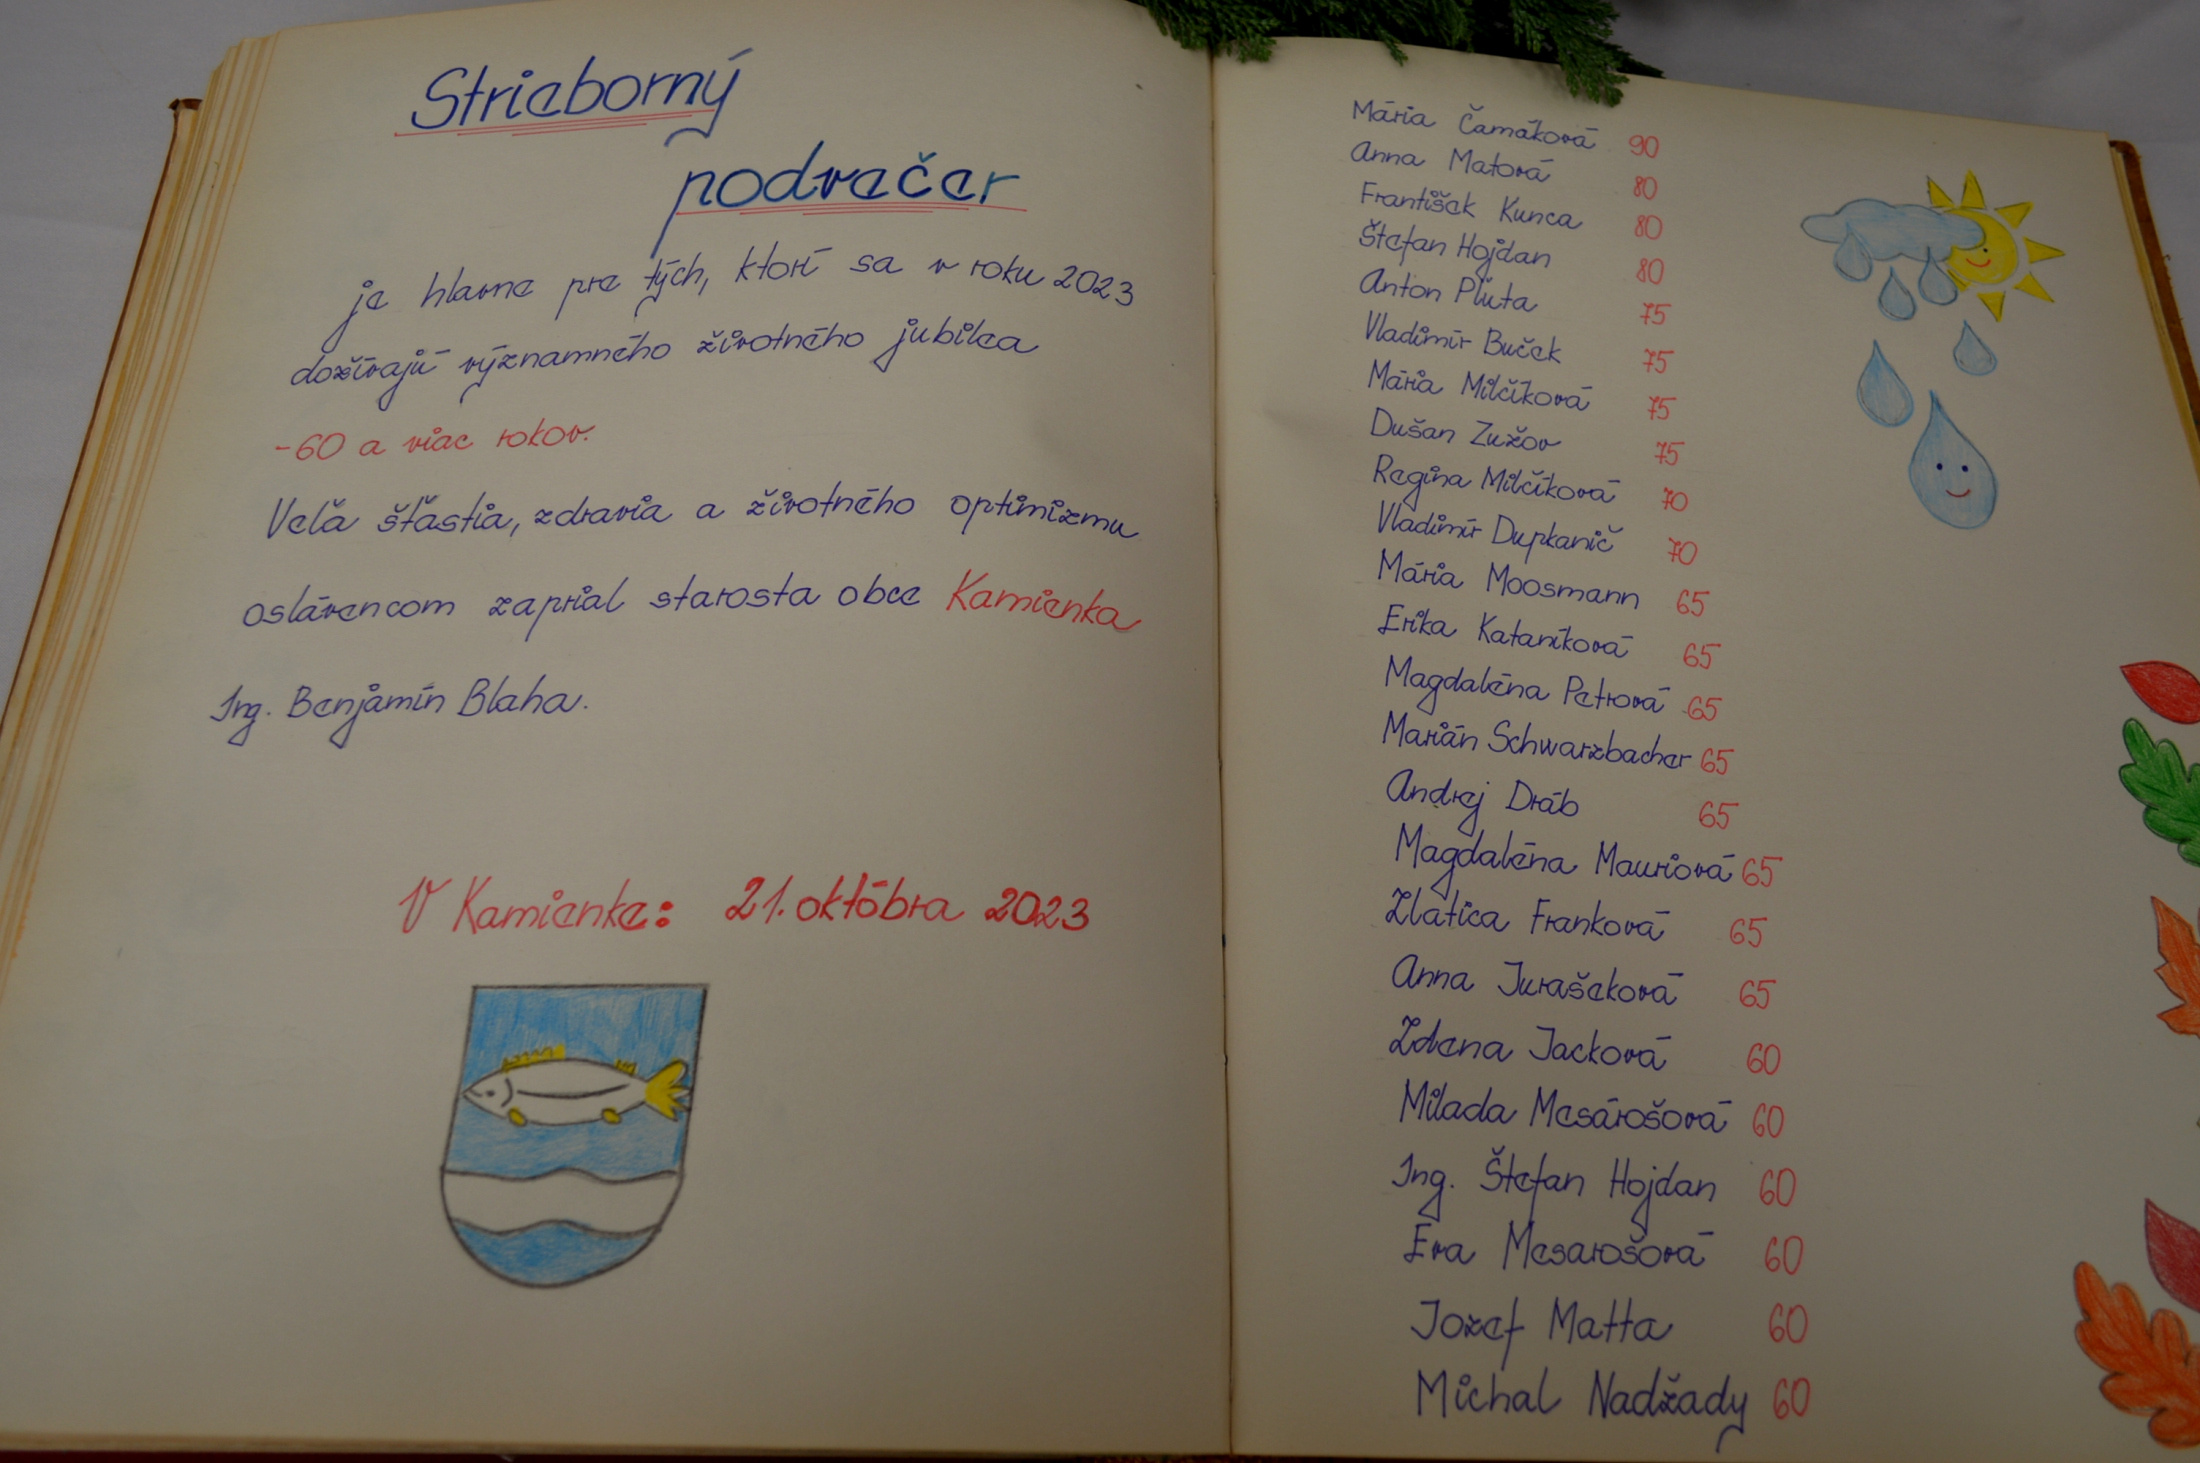 Strieborný
podvečer
je hlavne pre tých, ktorí sa v roku 2023
dožívajú významného životného jubilea
-60 a viac rokov.
Veľa šťastia, zdravia a životného optimizmu
oslávencom zaprial starosta obce Kamienka
Ing. Benjamín Blaha.
V Kamienke: 21. októbra 2023
Mária Čamáková 90
Anna Matová 80
František Kunca 80
Štefan Hojdan 80
Anton Pluta 75
Vladimír Buček 75
Mária Milčíková 75
Dušan Zužov 75
Regina Milčíková 70
Vladimír Dupkanič 70
Mária Moosmann 65
Erika Kataníková 65
Magdaléna Petrová 65
Marián Schwarzbacher 65
Andrej Dráb 65
Magdaléna Mauriová 65
Zlatica Franková 65
Anna Jurašeková 65
Zdena Jacková 60
Milada Mesárošová 60
Ing. Štefan Hojdan 60
Eva Mesarošová 60
Jozef Matta 60
Michal Nadžady 60